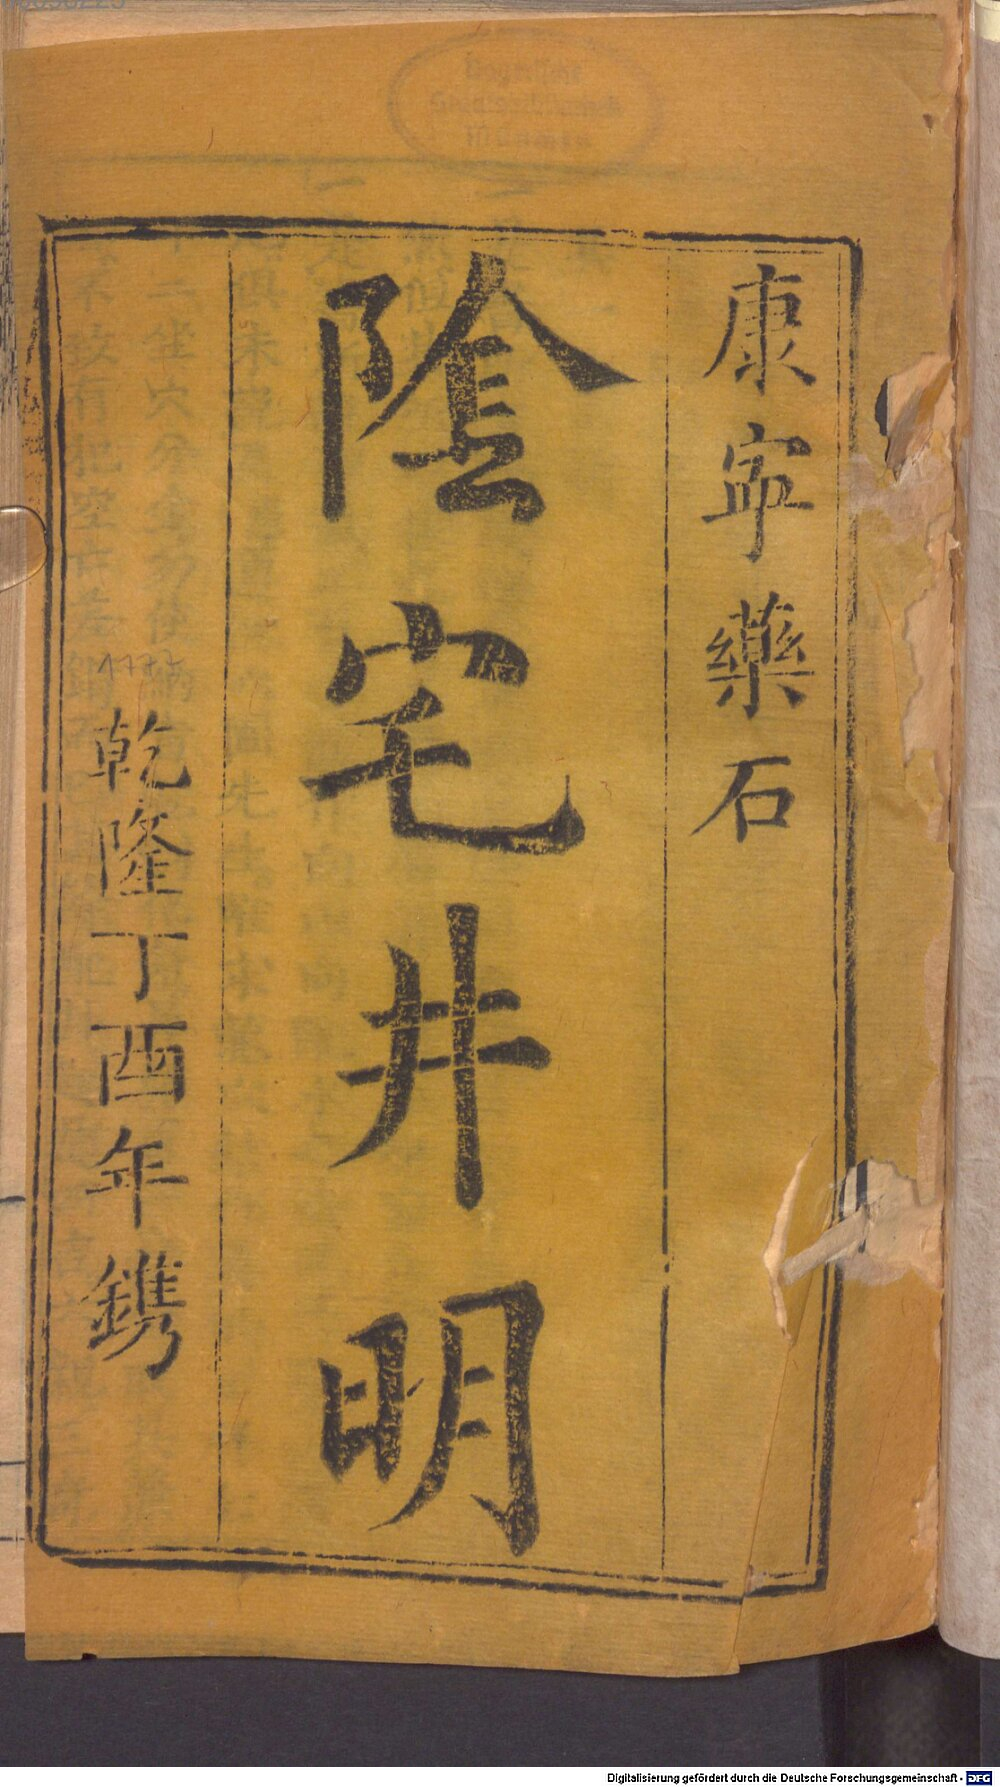 康寜藥石
陰宅井明
乾隆丁酉年鐫
1777
Bayerische
Staatsbibliothek
München
Digitalisierung gefördert durch die Deutsche Forschungsgemeinschaft - DFG